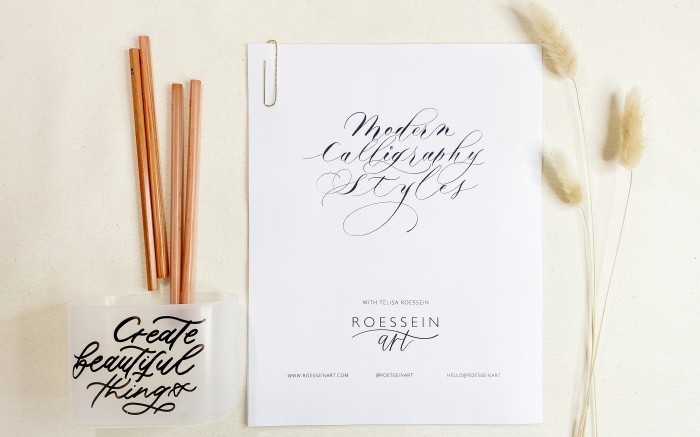 Modern
Calligraphy
Styles
WITH TELISA ROESSEIN
ROESSEIN
art
WWW.ROESSEINART.COM @ROETSEINART HELLO@ROESSEINART
Create
beautiful
things